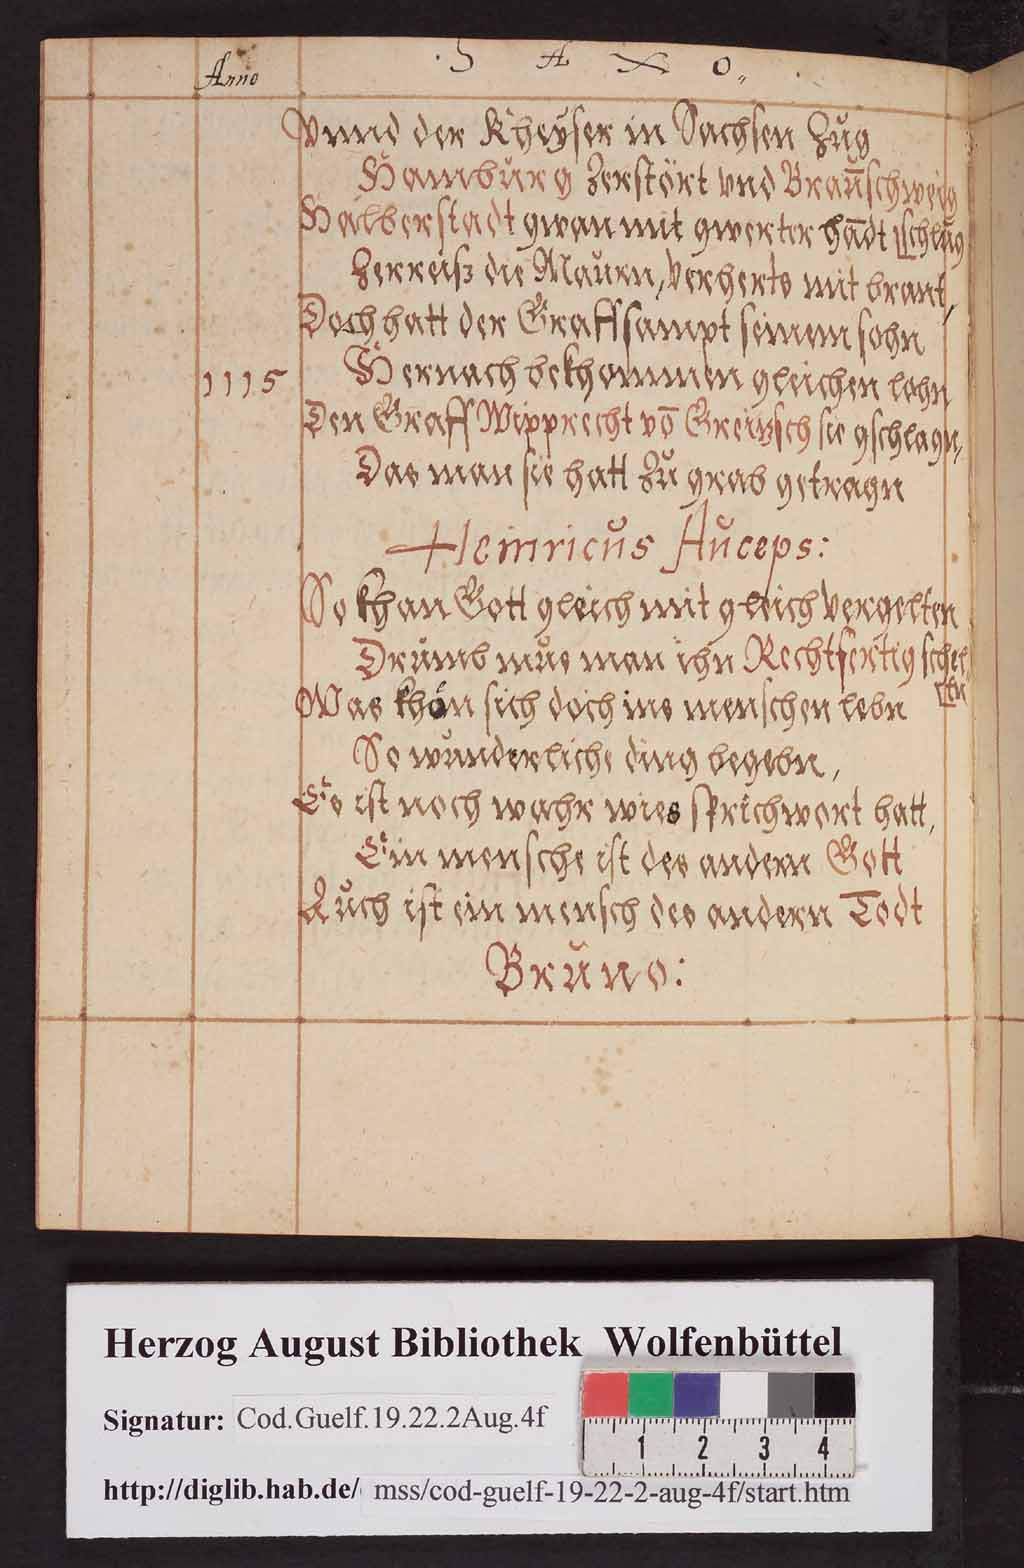 Anno
S A X O
Vnnd der Kheyser in Sachsen Zůg
Hambůrg Zerstört vnd Braũschweig
Halberstadt gwan mit gwerter hādt [schlůg
Zerreiß die Maůrn, Verherts mit brant,
Doch hatt der Graff sampt seinem sohn
1115 Hernach bekhommen gleichen lohn
Den Graff Wipprecht vō Greitzsch sie gschlagn,
Das man sie hatt Zů grab getragn
Heinricůs Aůceps:
So khan Gott gleich mit gleich Vergelten
Drůmb můs man ihn Rechtfertig schel
[ten
Was khön sich doch ins menschen lebn
So wůnderliche ding begebn,
Es ist noch wahr wies sprichwort hatt,
Ein mensche ist des andern Gott
Aůch ist ein mensch des andern Todt
Brůno:
Herzog August Bibliothek Wolfenbüttel
Signatur: Cod.Guelf.19.22.2Aug.4f
1 2 3 4
http://diglib.hab.de/ mss/cod-guelf-19-22-2-aug-4f/start.htm